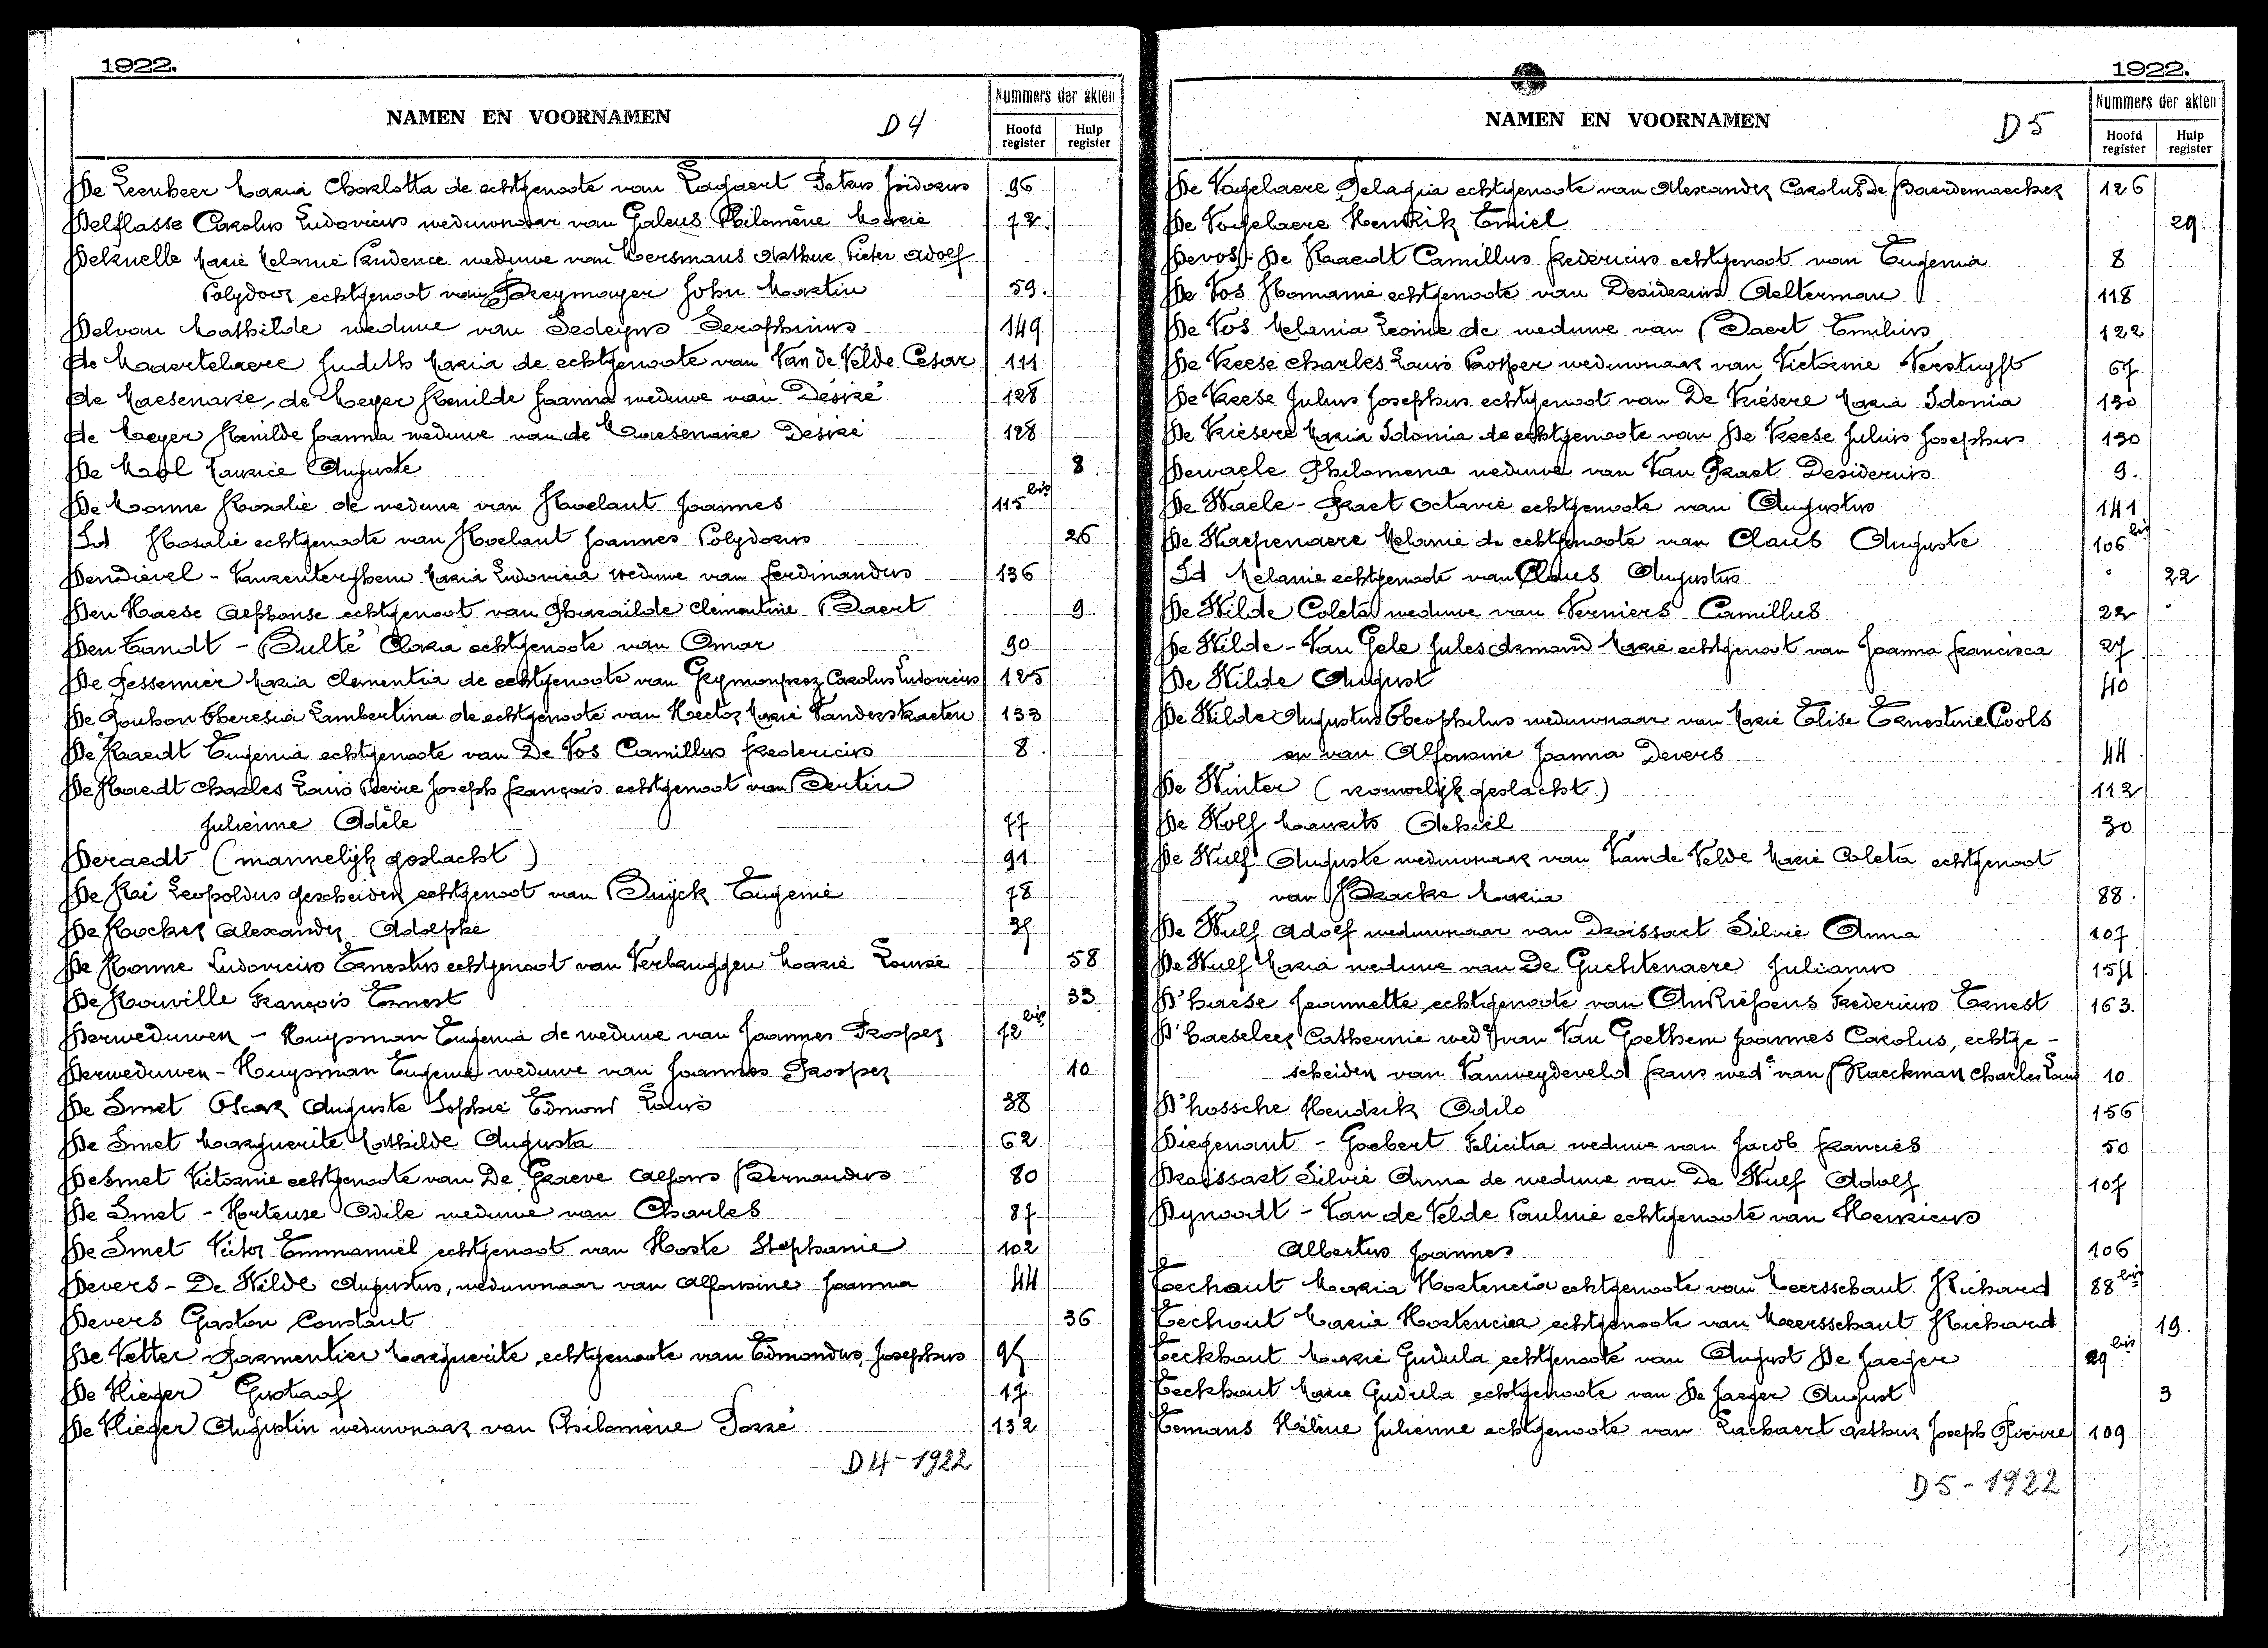 1922.
NAMEN EN VOORNAMEN
D 4
Nummers der akten
Hoofd register
Hulp register
De Leenheer Maria Charlotta de echtgenoote van Lagaert Petrus Isidorus 96
Delflasse Carolus Ludovicus weduwnaar van Galeus Philomène Marie 72.
Delruelle Marie Melanie Prudence weduwe van Meersmans Arthur Pieter Adolf
Polydoor echtgenoot van Freymayer John Martin 59.
Delvau Mathilde weduwe van Sedeyns Seraphinus 149
de Maertelaere Judith Maria de echtgenoote van Van de Velde Cesar 111
de Maesenaire, de Meyer Romilde Joanna weduwe van Désiré 128
de Meyer Romilde Joanna weduwe van de Maesenaire Désiré 128
De Mol Maurice Auguste 8.
De Moune Rosalie de weduwe van Roelant Joannes 115 bis
Id Rosalie echtgenoote van Roelant Joannes Polydorus 26
Dendievel - Vanzenterghem Maria Ludovicia weduwe van Ferdinandus 136
Den Haese Alphonse echtgenoot van Gharaïlde Clémentine Baert 9.
Den Tandt - Bulté Clara echtgenoote van Omar 90
De Pessemier Maria Clementia de echtgenoote van Grymonprez Carolus Ludovicus 125
De Pouhon Theresia Lambertina de echtgenoote van Hector Marie Vanderstraeten 133
De Raedt Eugenia echtgenoote van De Vos Camillus Fredericus 8.
De Raedt Charles Louis Pierre Joseph François echtgenoot van Bertin
Julienne Adèle 77
Deraedt (mannelijk geslacht) 91.
De Rai Leopoldus gescheiden echtgenoot van Buyck Eugenie 78
De Rocker Alexander Adolphe 35
De Ronne Ludovicus Ernestus echtgenoot van Verbruggen Marie Louise 58
De Rouville François Ernest 33
Derweduwen - Huysman Eugenia de weduwe van Joannes Prosper 72 bis
Derweduwen - Huysman Eugenia weduwe van Joannes Prosper 10
De Smet Oscar Auguste Sophie Edmond Louis 38
De Smet Marguerite Mathilde Augusta 62
Desmet Victorine echtgenoote van De Graeve Alfons Bernardus 80
De Smet - Hortense Odile weduwe van Charles 87
De Smet Victor Emmanuël echtgenoot van Hoste Stephanie 102
Devers - De Wilde Augustus, weduwnaar van Alfonsine Joanna 44
Devers Gaston Constant 36
De Vetter Parmentier Marguerite echtgenoote van Edmondus Josephus 95
De Vlieger Gustaaf 17
De Vlieger Augustin weduwnaar van Philomène Torré 132
D 4 - 1922
1922.
NAMEN EN VOORNAMEN
D 5
Nummers der akten
Hoofd register
Hulp register
De Vogelaere Pelagia echtgenoote van Alexander Carolus De Baerdemaecker 126
De Vogelaere Hendrik Emiel 29.
Devos - De Raedt Camillus Fredericus echtgenoot van Eugenia 8
De Vos Romanie echtgenoote van Desiderius Aelterman 118
De Vos Melania Leonie de weduwe van Baert Emilius 122
De Vreese Charles Louis Prosper weduwnaar van Victorine Verstuyft 67
De Vreese Julius Josephus echtgenoot van De Vriesere Maria Idonia 130
De Vriesere Maria Idonia de echtgenoote van De Vreese Julius Josephus 130
Dewaele Philomena weduwe van Van Praet Desiderius 9.
De Waele - Praet Octavie echtgenoote van Augustus 141
De Waepenaere Melanie de echtgenoote van Claus Auguste 106 bis
Id Melanie echtgenoote van Claus Augustus 22
De Wilde Coleta weduwe van Verniers Camillus 22
De Wilde - Van Gele Jules Armand Marie echtgenoot van Joanna Francisca 27
De Wilde August 40
De Wilde Augustus Theophilus weduwnaar van Marie Elise Ernestine Cools
en van Alfonsine Joanna Devers 44.
De Winter (vrouwelijk geslacht) 112
De Wolf Maurits Achiel 30
De Wulf Auguste weduwnaar van Van de Velde Marie Coleta echtgenoot
van Bracke Maria 88.
De Wulf Adolf weduwnaar van Droissart Silvie Anna 107
De Wulf Maria weduwe van De Guchtenaere Julianus 154
D'haese Jeannette echtgenoote van Andriessens Fredericus Ernest 163.
D'haeseleer Catherine wed. van Van Goethem Joannes Carolus, echtge-
scheiden van Vanweydeveld Frans wed.e van Raeckman Charles Louis 10
D'hossche Hendrik Odilo 156
Diegenant - Goebert Felicita weduwe van Jacob Francies 50
Droissart Silvie Anna de weduwe van De Wulf Adolf 107
Dynoodt - Van de Velde Pauline echtgenoote van Henricus
Albertus Joannes 106
Eechout Maria Hortencia echtgenoote van Meersschaut Richard 88 bis
Eechout Maria Hortencia echtgenoote van Meersschaut Richard 19.
Eeckhout Marie Gudula echtgenoote van August De Jaeger 29 bis
Eeckhout Marie Gudula echtgenoote van De Jaeger August 3
Eemans Hélène Julienne echtgenoote van Lackaert Arthur Joseph Pierre 109
D 5 - 1922